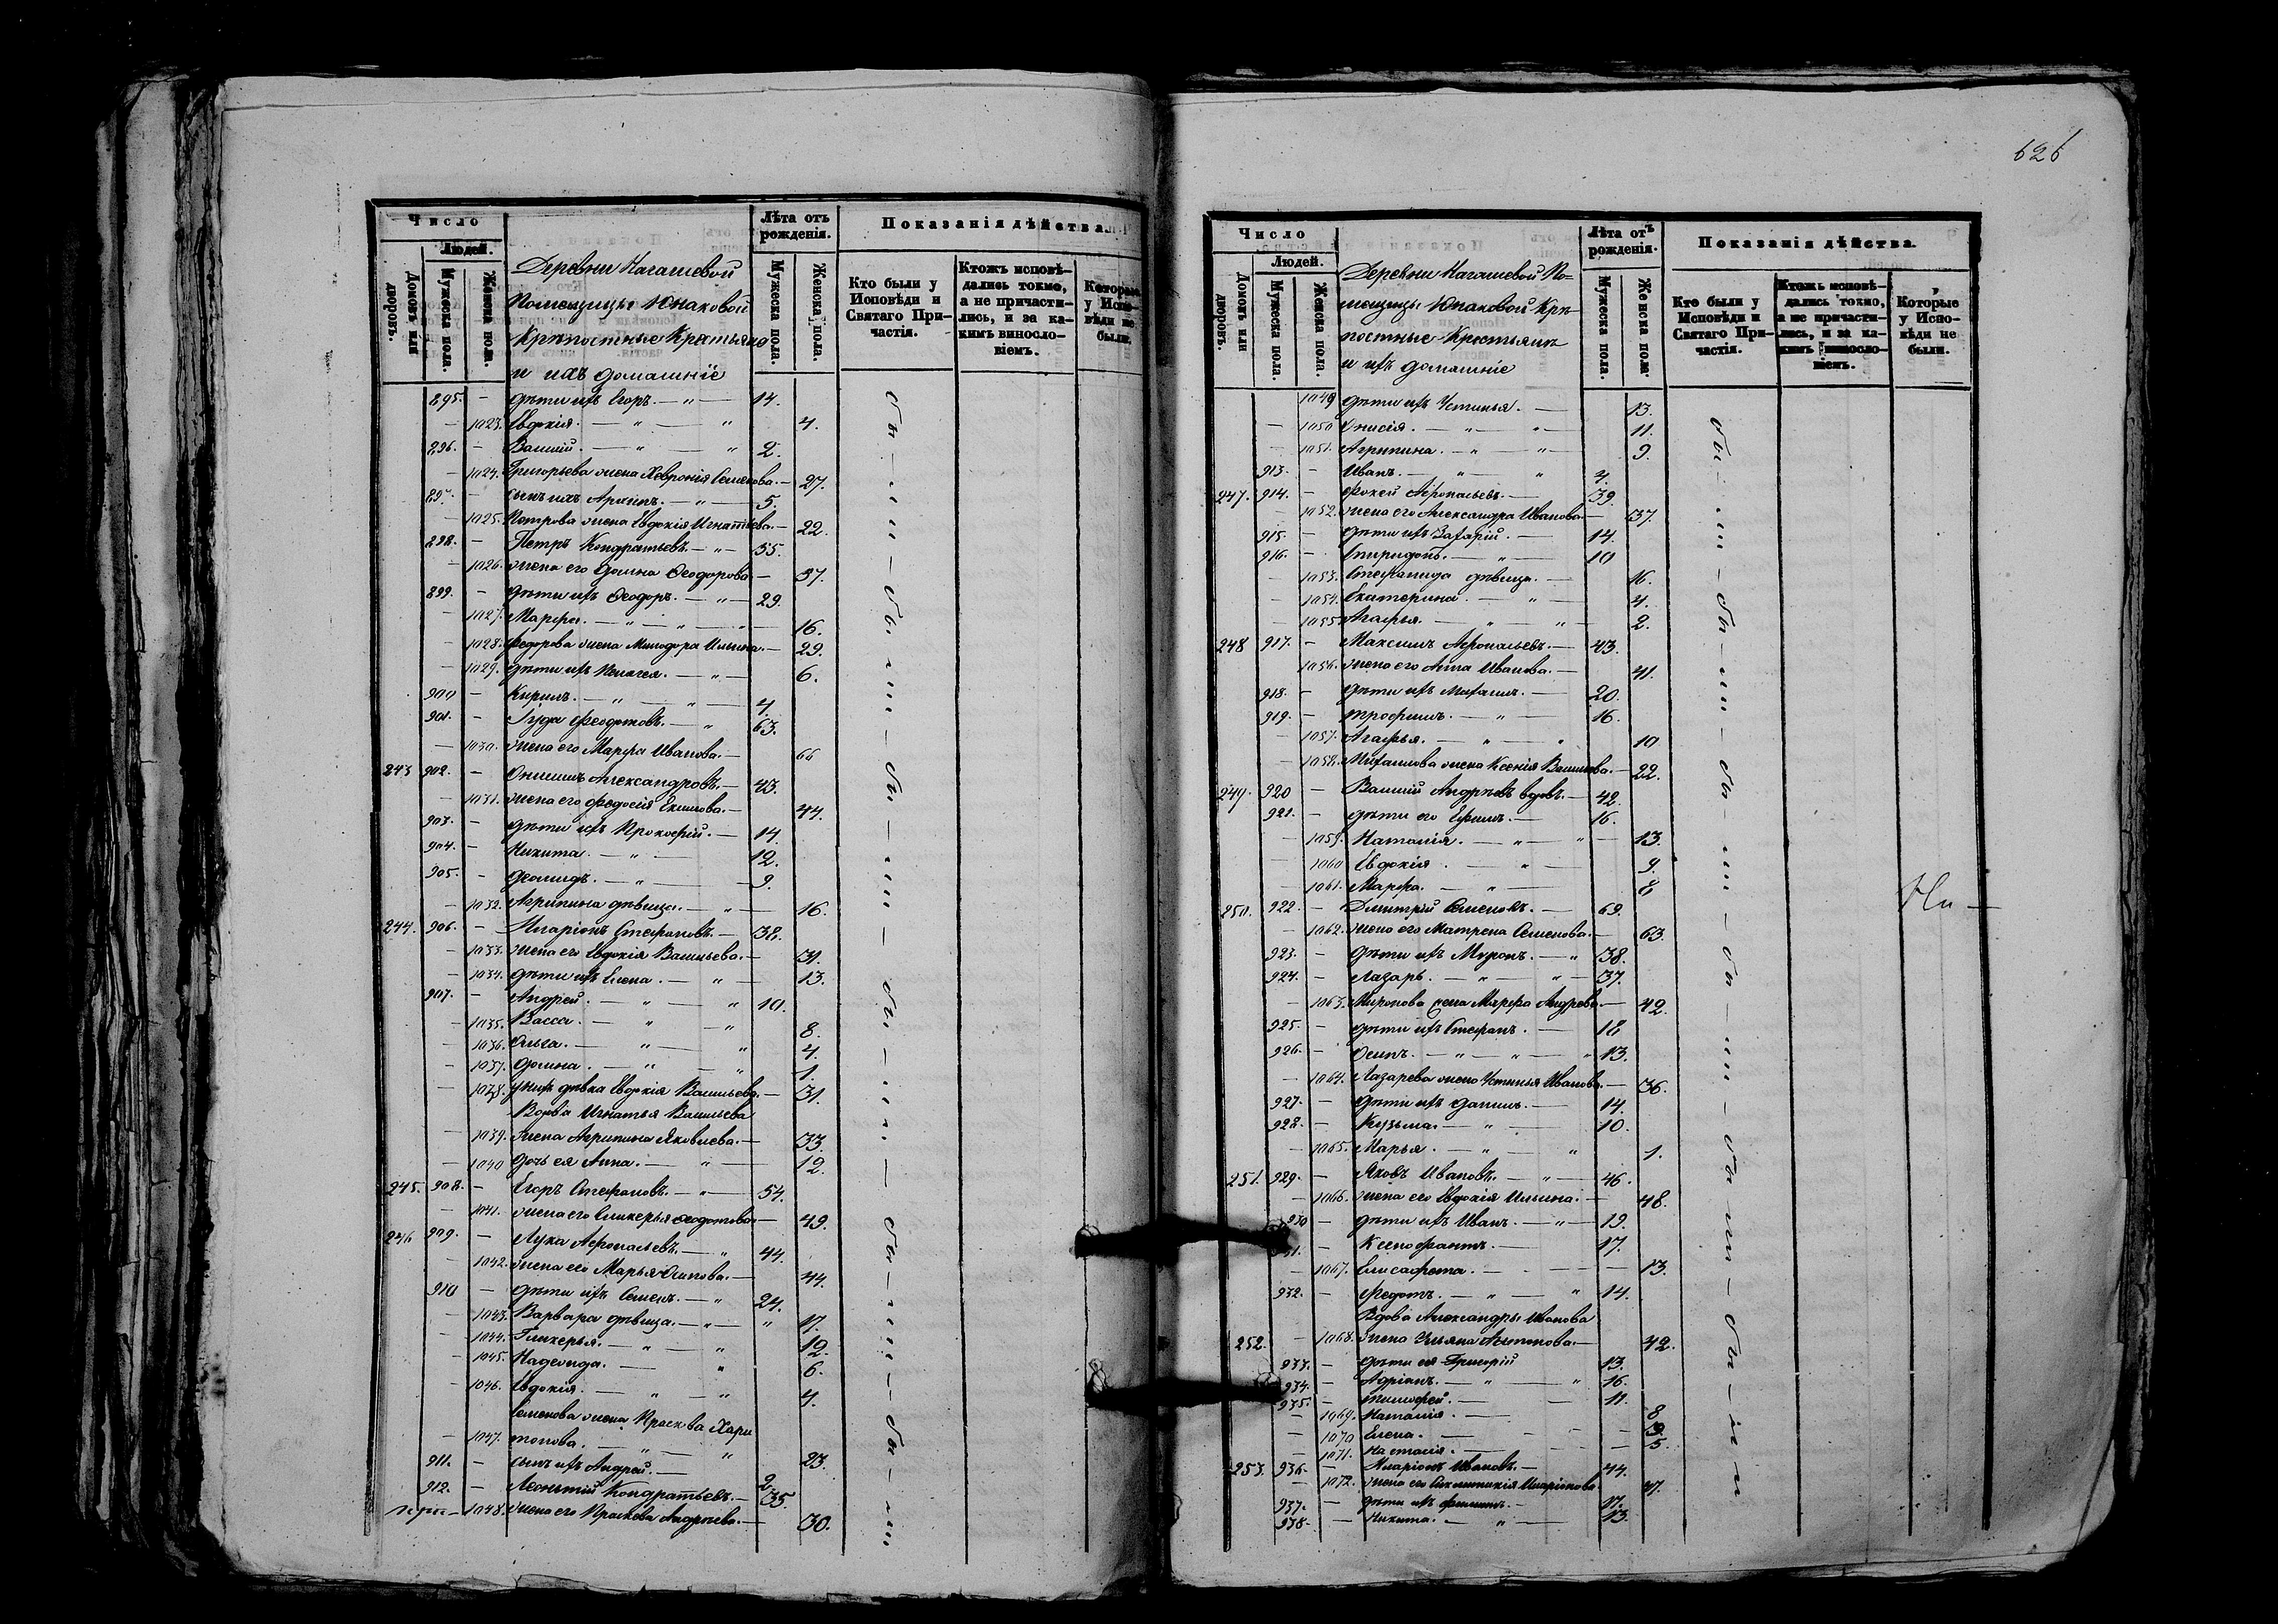 Число
Людей.
Домовъ или дворовъ.
Мужеска пола.
Женска пола.
Деревни Нагашевой
Помещицы Юнаковой
Крѣпостные Крестьяне
и ихъ домашніе
Лѣта отъ рожденія.
Мужеска пола.
Женска пола.
Показанія дѣйства.
Кто были у Исповѣди и Святаго Причастія.
Ктожъ исповѣдались токмо, а не причастились, и за какимъ винословіемъ.
Которые у Исповѣди не были.
895. — дѣти ихъ Егоръ. — " — 14.
— 1023. Евдокія. — " — " 4.
896. — Василій. — " — " 2.
— 1024. Григорьева жена Хевронія Семенова. — 27.
897. — сынъ ихъ Архипъ. — " — 5.
— 1025. Петрова жена Евдокія Игнатьева. — 22.
898. — Петръ Кондратьевъ. — " — 55.
— 1026. жена его Домна Ѳеодорова — 57.
899. — дѣти ихъ Ѳеодоръ. — " — 29.
— 1027. Марфа. — " — " — 16.
— 1028. Федорова жена Минодора Ильина. — 29.
— 1029. дѣти ихъ Пелагея. — " — 6.
900 — Кирилъ. — " — " — 4.
901. — Іуда Феодотовъ. — " 63.
— 1030. жена его Марфа Иванова. — 66
243 902. — Онисимъ Александровъ. — 43.
— 1031. жена его Федосія Екимова. — 44.
903. — дѣти ихъ Прокофій. — 14.
904. — Никита. — " — 12.
905. — Леонидъ. — " — 9.
— 1032. Агрипина дѣвица. — " — 16.
244. 906. — Иларіонъ Стефановъ. — 38.
— 1033. жена его Евдокія Васильева. — 31.
— 1034. дѣти ихъ Елена. — " — 13.
907. — Андрей. — " — " 10.
— 1035. Васса. — " — " 8.
— 1036. Ольга. — " — " 4.
— 1037. Домна. — " — " 1.
— 1038. у нихъ дѣвка Евдокія Васильева. — 31.
Вдова Игнатья Васильева
— 1039. жена Агрипина Яковлева. — 33.
— 1040 дочь ея Анна. — " — 12.
245. 908. — Егоръ Стефановъ. — " — 54.
— 1041. жена его Гликерья Ѳеодотова — 49.
246 909. — Лука Афонасьевъ. — " 44.
— 1042. жена его Марья Осипова. — 44.
910 — дѣти ихъ Семенъ. — " 24.
— 1043. Варвара дѣвица. — " — " 17.
— 1044. Гликерья. — " — " 12.
— 1045. Надежда. — " 6.
— 1046. Евдокія. — " — " 4.
Семенова жена Праскева Хари
— 1047. тонова. — " — " 23.
911. — сынъ ихъ Андрей. — 2.
912. — Леонтій Кондратьевъ. — 35.
— 1048. жена его Праскева Андреева. — 30.
бы — ли — бы — ли — бы — ли — бы — ли — бы — ли — бы — ли
626
Число
Людей.
Домовъ или дворовъ.
Мужеска пола.
Женска пола.
Деревни Нагашевой По-
мещицы Юнаковой Крѣ
постные Крестьяне
и ихъ домашніе
Лѣта отъ рожденія.
Мужеска пола.
Женска пола.
Показанія дѣйства.
Кто были у Исповѣди и Святаго Причастія.
Ктожъ исповѣдались токмо, а не причастились, и за какимъ винословіемъ.
Которые у Исповѣди не были.
1049 дѣти ихъ Устинья. — 13.
— 1050 Онисія. — " — " — 11.
— 1051. Агрипина. — " — " — 9.
913. — Иванъ. — " — " 4.
247. 914. — Фокей Афонасьевъ. — 39.
— 1052. жена его Александра Иванова — 37.
915. — дѣти ихъ Захарій. — 14.
916. — Спиридонъ. — " — 10
— 1053. Стефанида дѣвица. — 16.
— 1054. Екатерина. — " — 4.
— 1055. Агафья. — " — " — 2.
248 917. — Максимъ Афонасьевъ. — 43.
— 1056. жена его Анна Иванова. — 41.
918. — дѣти ихъ Михаилъ. — 20.
919. — Трофимъ. — " — 16.
— 1057. Агафья. — " — " 10
— 1058. Михаилова жена Ксенія Васильева. — 22.
249. 920 — Василій Андреевъ вдовъ. — 42.
921. — дѣти его Ефимъ. — 16.
— 1059. Наталія. — " — " — 13.
— 1060 Евдокія. — " — 9.
— 1061. Марфа. — " — 8
250. 922. — Димитрій Семеновъ. — 69.
— 1062. жена его Матрена Семенова. — 63.
923. — дѣти ихъ Миронъ. — " 38.
924. — Лазарь. — " — " — 37.
— 1063. Миронова жена Марфа Андреева — 42.
925. — дѣти ихъ Стефанъ. — 18
926. — Осипъ. — " — " — " 13.
— 1064. Лазарева жена Устинья Иванова. — 36.
927. — дѣти ихъ Данилъ. — 14.
928. — Кузьма. — " — 10.
— 1065. Марья. — " — " 1.
251. 929. — Яковъ Ивановъ. — " — 46.
— 1066. жена его Евдокія Ильина. — 48.
930 — дѣти ихъ Иванъ. — " — 19.
31. — Ксенофонтъ. — 17.
— 1067. Елисафета. — 13.
932. — Федотъ. — " — " 14.
Вдова Александры Иванова
252. — 1068. жена Ульяна Антонова. — 42.
933. — дѣти ея Григорій 13.
934. — Адріанъ. — " — " 16.
935. — Тимофей. — 11.
— 1069. Наталія. — 8
— 1070 Елена. —
— 1071. Настасія. — 5.
253. 936. — Иларіонъ Ивановъ. — 44.
— 1072. жена его Иларіонова. 47.
937. — дѣти ихъ — 17.
938. — Никита. — " — 13.
бы — ли — бы — ли — бы — ли — бы — ли — бы — ли — бы — ли
Ни —